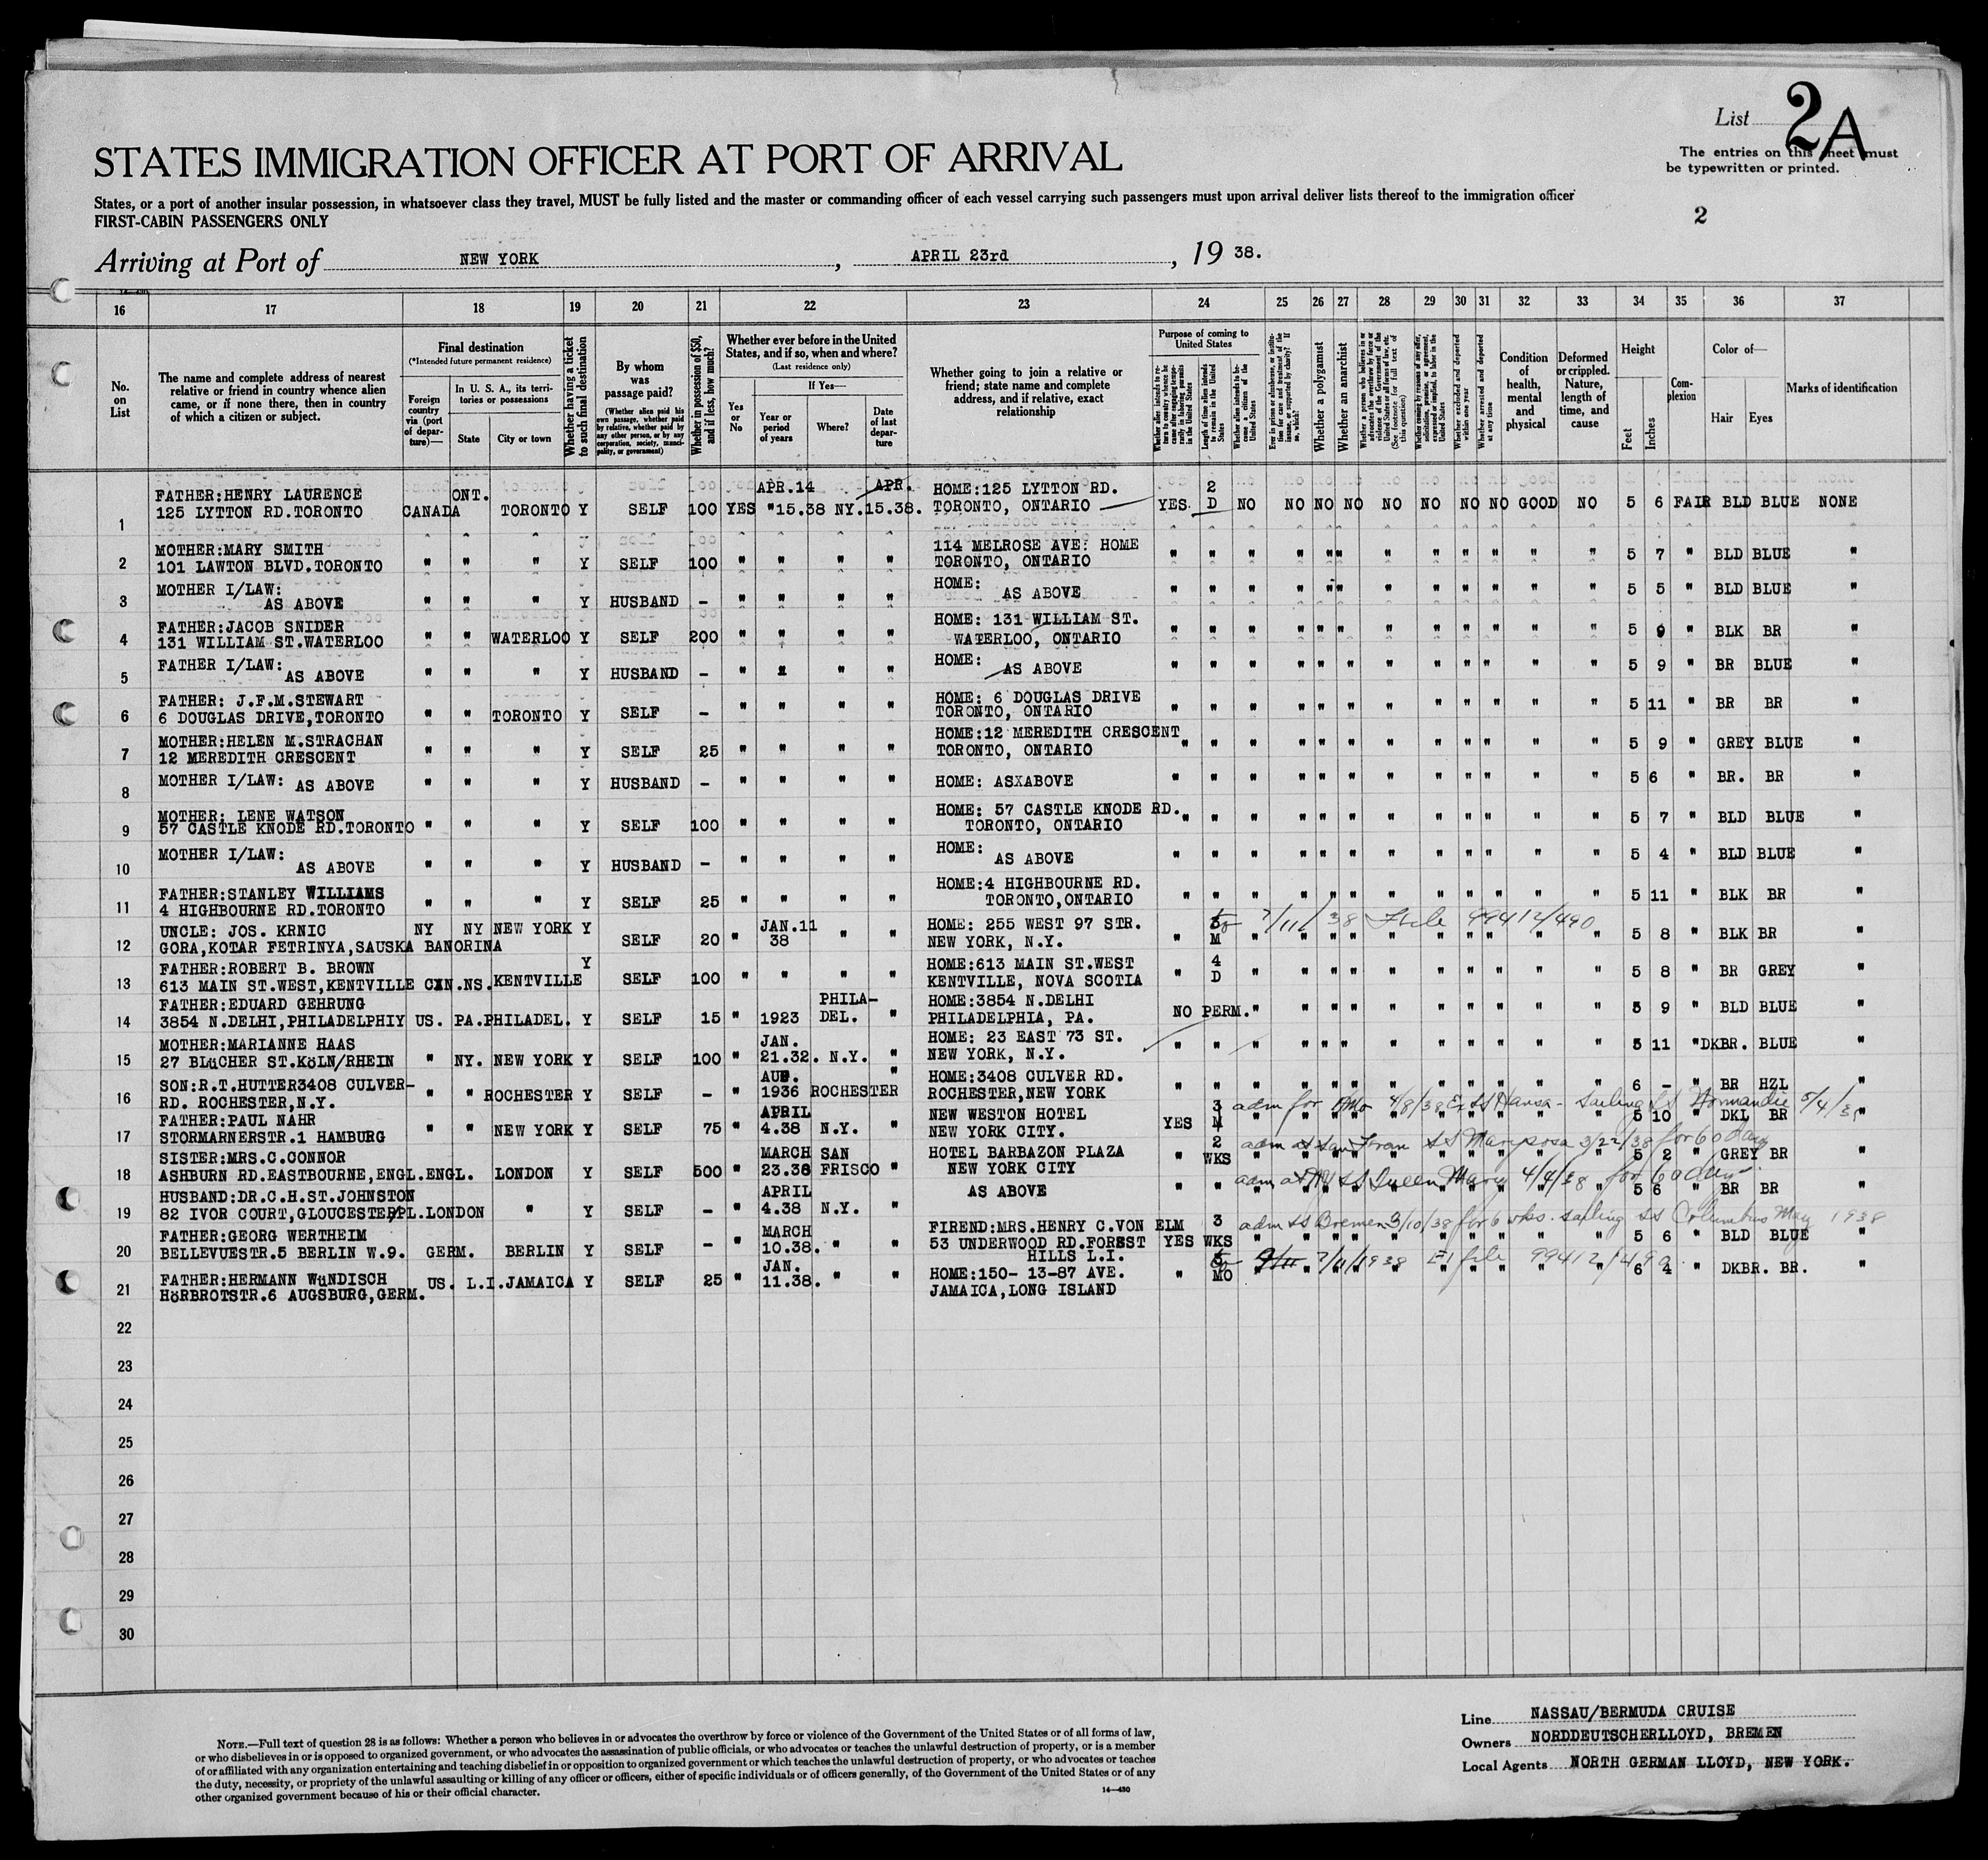 List 2A
STATES IMMIGRATION OFFICER AT PORT OF ARRIVAL
The entries on this sheet must
be typewritten or printed.
States, or a port of another insular possession, in whatsoever class they travel, MUST be fully listed and the master or commanding officer of each vessel carrying such passengers must upon arrival deliver lists thereof to the immigration officer
FIRST-CABIN PASSENGERS ONLY
2
Arriving at Port of NEW YORK, APRIL 23rd, 19 38.
16 17 18 19 20 21 22 23 24 25 26 27 28 29 30 31 32 33 34 35 36 37
No. on List
The name and complete address of nearest relative or friend in country whence alien came, or if none there, then in country of which a citizen or subject.
Final destination
(*Intended future permanent residence)
Foreign country via (port of departure)—
In U. S. A., its territories or possessions
State
City or town
Whether having a ticket to such final destination
By whom was passage paid?
(Whether alien paid his own passage, whether paid by relative, whether paid by any other person, or by any corporation, society, municipality, or government)
Whether in possession of $50, and if less, how much?
Whether ever before in the United States, and if so, when and where?
(Last residence only)
Yes or No
If Yes—
Year or period of years
Where?
Date of last departure
Whether going to join a relative or friend; state name and complete address, and if relative, exact relationship
Purpose of coming to United States
Length of time alien intends to remain in the United States
Whether alien intends to become a citizen of the United States
Whether a polygamist
Whether an anarchist
(See footnote for full text of this question)
Whether excluded and deported within one year
Whether arrested and deported at any time
Condition of health, mental and physical
Deformed or crippled. Nature, length of time, and cause
Height
Feet
Inches
Complexion
Color of—
Hair
Eyes
Marks of identification
1 FATHER:HENRY LAURENCE 125 LYTTON RD.TORONTO CANADA ONT. TORONTO Y SELF 100 YES APR.14 "15.38 NY. APR. 15.38. HOME:125 LYTTON RD. TORONTO, ONTARIO YES 2 D NO NO NO NO NO NO NO NO GOOD NO 5 6 FAIR BLD BLUE NONE
2 MOTHER:MARY SMITH 101 LAWTON BLVD.TORONTO " " " Y SELF 100 " " " " 114 MELROSE AVE: HOME TORONTO, ONTARIO " " " " " " " " " " " " " 5 7 " BLD BLUE "
3 MOTHER I/LAW: AS ABOVE " " " Y HUSBAND - " " " " HOME: AS ABOVE " " " " " " " " " " " " 5 5 " BLD BLUE "
4 FATHER:JACOB SNIDER 131 WILLIAM ST.WATERLOO " " WATERLOO Y SELF 200 " " " " HOME: 131 WILLIAM ST. WATERLOO, ONTARIO " " " " " " " " " " " " 5 9 " BLK BR "
5 FATHER I/LAW: AS ABOVE " " " Y HUSBAND - " " " " HOME: AS ABOVE " " " " " " " " " " " " 5 9 " BR BLUE "
6 FATHER: J.F.M.STEWART 6 DOUGLAS DRIVE,TORONTO " " TORONTO Y SELF - " " " " HOME: 6 DOUGLAS DRIVE TORONTO, ONTARIO " " " " " " " " " " " " 5 11 " BR BR "
7 MOTHER:HELEN M.STRACHAN 12 MEREDITH CRESCENT " " " Y SELF 25 " " " " HOME:12 MEREDITH CRESCENT TORONTO, ONTARIO " " " " " " " " " " " " 5 9 " GREY BLUE "
8 MOTHER I/LAW: AS ABOVE " " " Y HUSBAND - " " " " HOME: ASXABOVE " " " " " " " " " " " " 5 6 " BR. BR "
9 MOTHER: LENE WATSON 57 CASTLE KNODE RD.TORONTO " " " Y SELF 100 " " " " HOME: 57 CASTLE KNODE RD. TORONTO, ONTARIO " " " " " " " " " " " " 5 7 " BLD BLUE "
10 MOTHER I/LAW: AS ABOVE " " " Y HUSBAND - " " " " HOME: AS ABOVE " " " " " " " " " " " " 5 4 " BLD BLUE "
11 FATHER:STANLEY WILLIAMS 4 HIGHBOURNE RD.TORONTO " " " Y SELF 25 " " " " HOME:4 HIGHBOURNE RD. TORONTO,ONTARIO " " " " " " " " " " " " 5 11 " BLK BR "
12 UNCLE: JOS. KRNIC GORA,KOTAR FETRINYA,SAUSKA BANORINA NY NY NEW YORK Y SELF 20 " JAN.11 38 " " HOME: 255 WEST 97 STR. NEW YORK, N.Y. " M 7/11/38 File 99412/490 " " " " " " " " " " 5 8 " BLK BR "
13 FATHER:ROBERT B. BROWN 613 MAIN ST.WEST,KENTVILLE CAN.NS. KENTVILLE Y SELF 100 " " " " HOME:613 MAIN ST.WEST KENTVILLE, NOVA SCOTIA " 4 D " " " " " " " " " " 5 8 " BR GREY "
14 FATHER:EDUARD GEHRUNG 3854 N.DELHI,PHILADELPHIY US. PA. PHILADEL. Y SELF 15 " 1923 PHILA-DEL. " HOME:3854 N.DELHI PHILADELPHIA, PA. NO PERM. " " " " " " " " " " 5 9 " BLD BLUE "
15 MOTHER:MARIANNE HAAS 27 BLüCHER ST.KöLN/RHEIN " NY. NEW YORK Y SELF 100 " JAN. 21.32. N.Y. " HOME: 23 EAST 73 ST. NEW YORK, N.Y. " " " " " " " " " " " " 5 11 " DKBR. BLUE "
16 SON:R.T.HUTTER3408 CULVER-RD. ROCHESTER,N.Y. " " ROCHESTER Y SELF - " AUG. 1936 ROCHESTER " HOME:3408 CULVER RD. ROCHESTER,NEW YORK " " " " " " " " " " " " 6 - " BR HZL "
17 FATHER:PAUL NAHR STORMARNERSTR.1 HAMBURG " " NEW YORK Y SELF 75 " APRIL 4.38 N.Y. " NEW WESTON HOTEL NEW YORK CITY. YES 3 M adm for 4/8/38 Ex SS Hansa - Sailing SS Normandie 5/4/38 " " " " " " " " " " 5 10 " DKL BR "
18 SISTER:MRS.C.CONNOR ASHBURN RD.EASTBOURNE,ENGL. ENGL. LONDON Y SELF 500 " MARCH 23.38 SAN FRISCO " HOTEL BARBAZON PLAZA NEW YORK CITY " 2 WKS adm at San Fran SS Mariposa 3/22/38 for 60 days " " " " " " " " " " 5 2 " GREY BR "
19 HUSBAND:DR.C.H.ST.JOHNSTON 82 IVOR COURT,GLOUCESTER PL.LONDON " Y SELF - " APRIL 4.38 N.Y. " AS ABOVE " " adm at NY SS Queen Mary 4/4/38 for 60 days " " " " " " " " " " 5 6 " BR BR "
20 FATHER:GEORG WERTHEIM BELLEVUESTR.5 BERLIN W.9. GERM. BERLIN Y SELF - " MARCH 10.38. " " FIREND:MRS.HENRY C.VON ELM 53 UNDERWOOD RD.FORSST HILLS L.I. YES 3 WKS adm SS Bremen 3/10/38 for 6 wks. sailing SS Columbus May 1938 " " " " " " " " " " 5 6 " BLD BLUE "
21 FATHER:HERMANN WüNDISCH HöRBROTSTR.6 AUGSBURG,GERM. US. L.I. JAMAICA Y SELF 25 " JAN. 11.38. " " HOME:150- 13-87 AVE. JAMAICA,LONG ISLAND " MO 7/11/1938 EI file 99412/490 " " " " " " " " " " 6 4 " DKBR. BR. "
22
23
24
25
26
27
28
29
30
NOTE.—Full text of question 28 is as follows: Whether a person who believes in or advocates the overthrow by force or violence of the Government of the United States or of all forms of law,
or who disbelieves in or is opposed to organized government, or who advocates the assassination of public officials, or who advocates or teaches the unlawful destruction of property, or is a member
of or affiliated with any organization entertaining and teaching disbelief in or opposition to organized government or which teaches the unlawful destruction of property, or who advocates or teaches
the duty, necessity, or propriety of the unlawful assaulting or killing of any officer or officers, either of specific individuals or of officers generally, of the Government of the United States or of any
other organized government because of his or their official character.
14—430
Line NASSAU/BERMUDA CRUISE
Owners NORDDEUTSCHERLLOYD, BREMEN
Local Agents NORTH GERMAN LLOYD, NEW YORK.